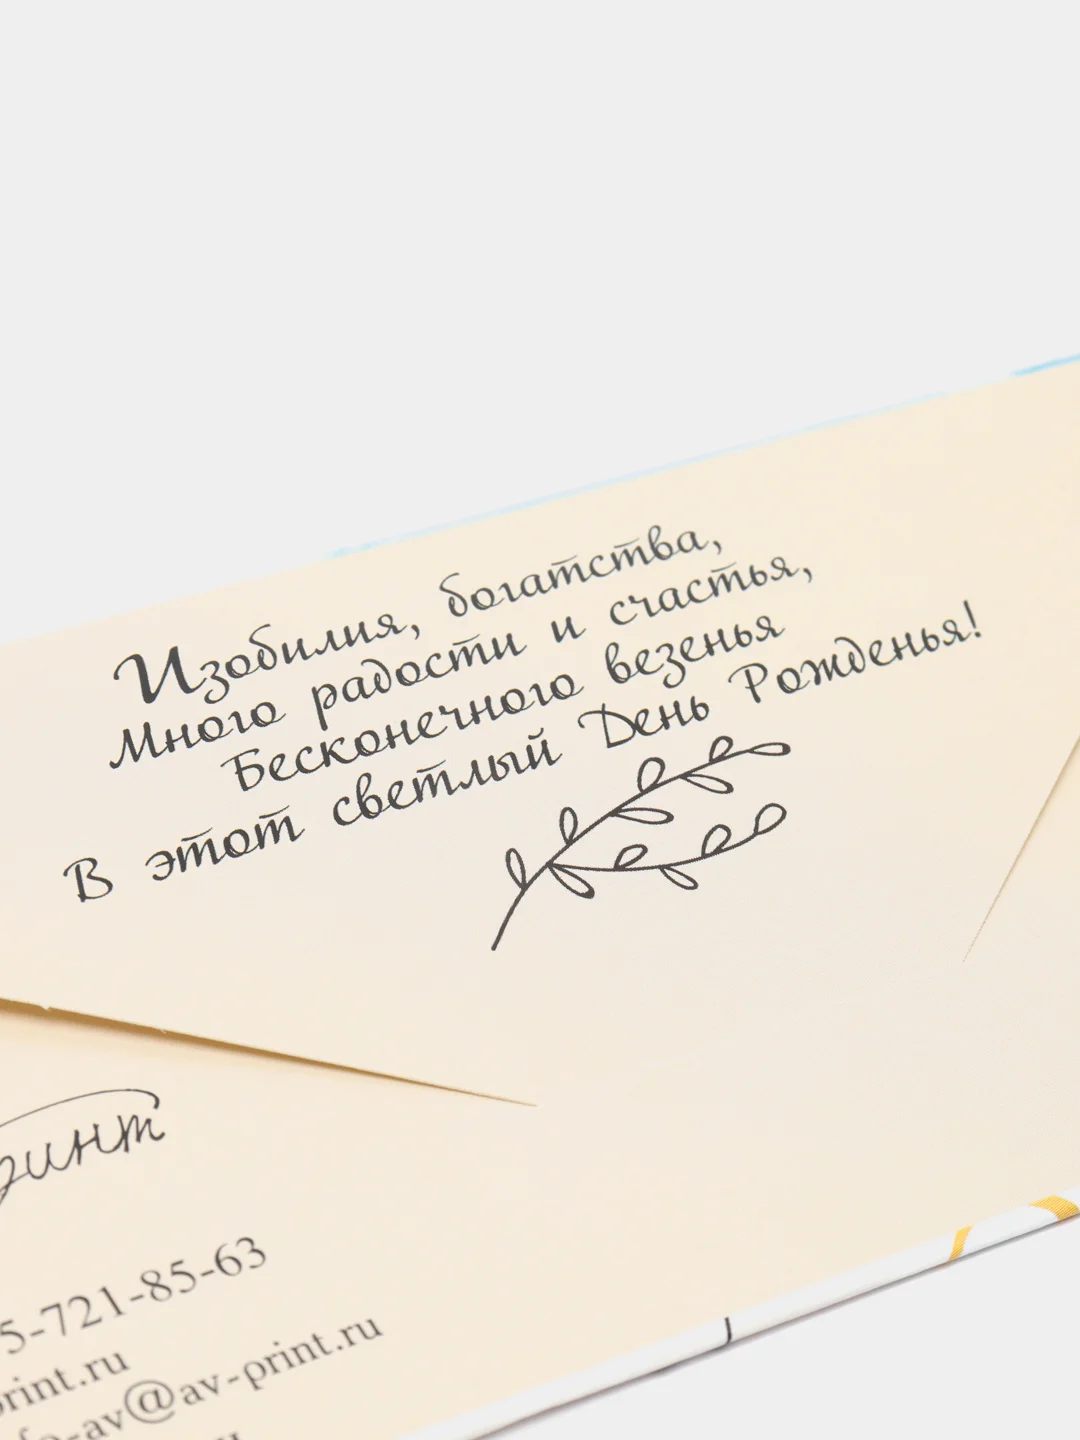 Изобилия, богатства,
Много радости и счастья,
Бесконечного везенья
В этот светлый День Рожденья!
5-721-85-63
print.ru
fo-av@av-print.ru